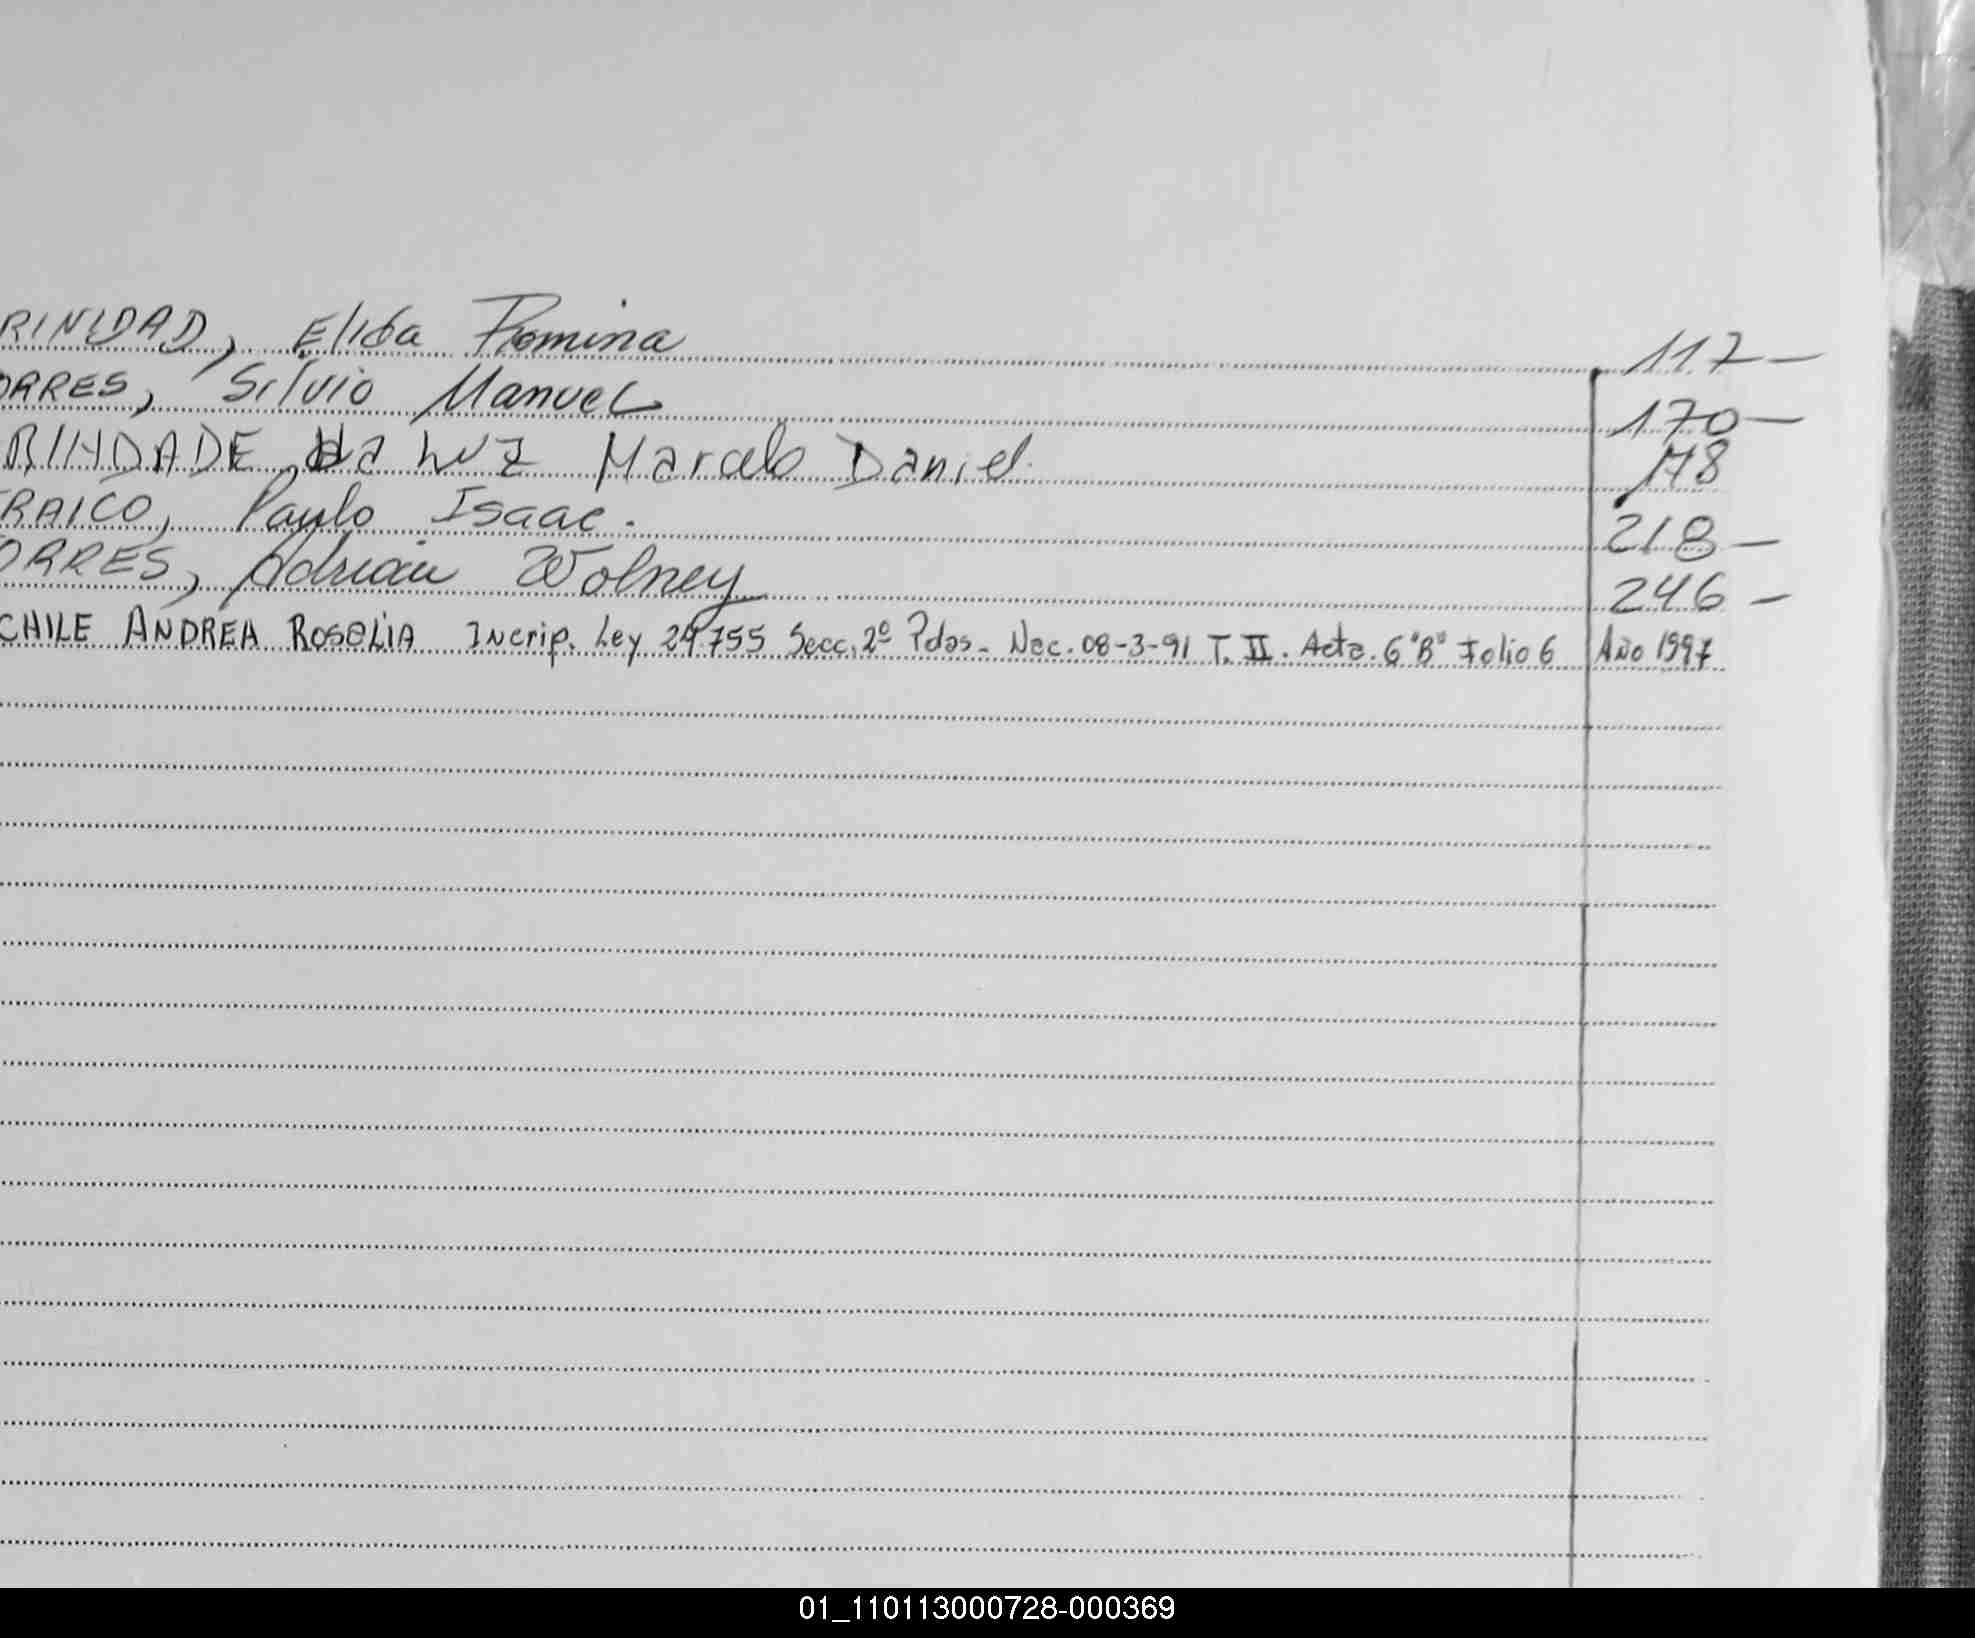 RINIDAD, Elida Romina 117-
ORRES, Silvio Manuel 170-
RINDADE da LUZ Marcelo Daniel. 178
RAICO, Paulo Isaac. 218-
ORRES, Adrian Wolney 246-
CHILE ANDREA ROSELIA Incrip. Ley 24755 Secc. 2º Pdos. Nac. 08-3-91 T. II. Acta. 6 "B" Folio 6 Año 1997
01_110113000728-000369